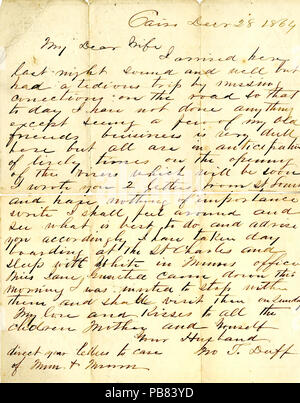 Cairo Decr 28 1864
My Dear Wife
I arrived here
last night sound and well but
had a tedious trip by missing
connections on the road so that
to day I have not done anything
except seeing a few of my old
friends business is very dull
here but all are in anticipation
of lively times on the opening
of the rivers which will be soon
I wrote you 2 letters from St Louis
and have nothing of importance
write I shall feel around and
see what is best to do and advise
you accordingly I have taken day
boarding at the St Charles and
sleep with White in Munns office
Miss Jane came down this
morning was invited to stop with
them and shall visit them on Sunday
My love and Kisses to all the
children Mother and yourself
Your Husband
Jno T. Duff
direct your letters to care
of Mun & Munn
alamy
PB83YD